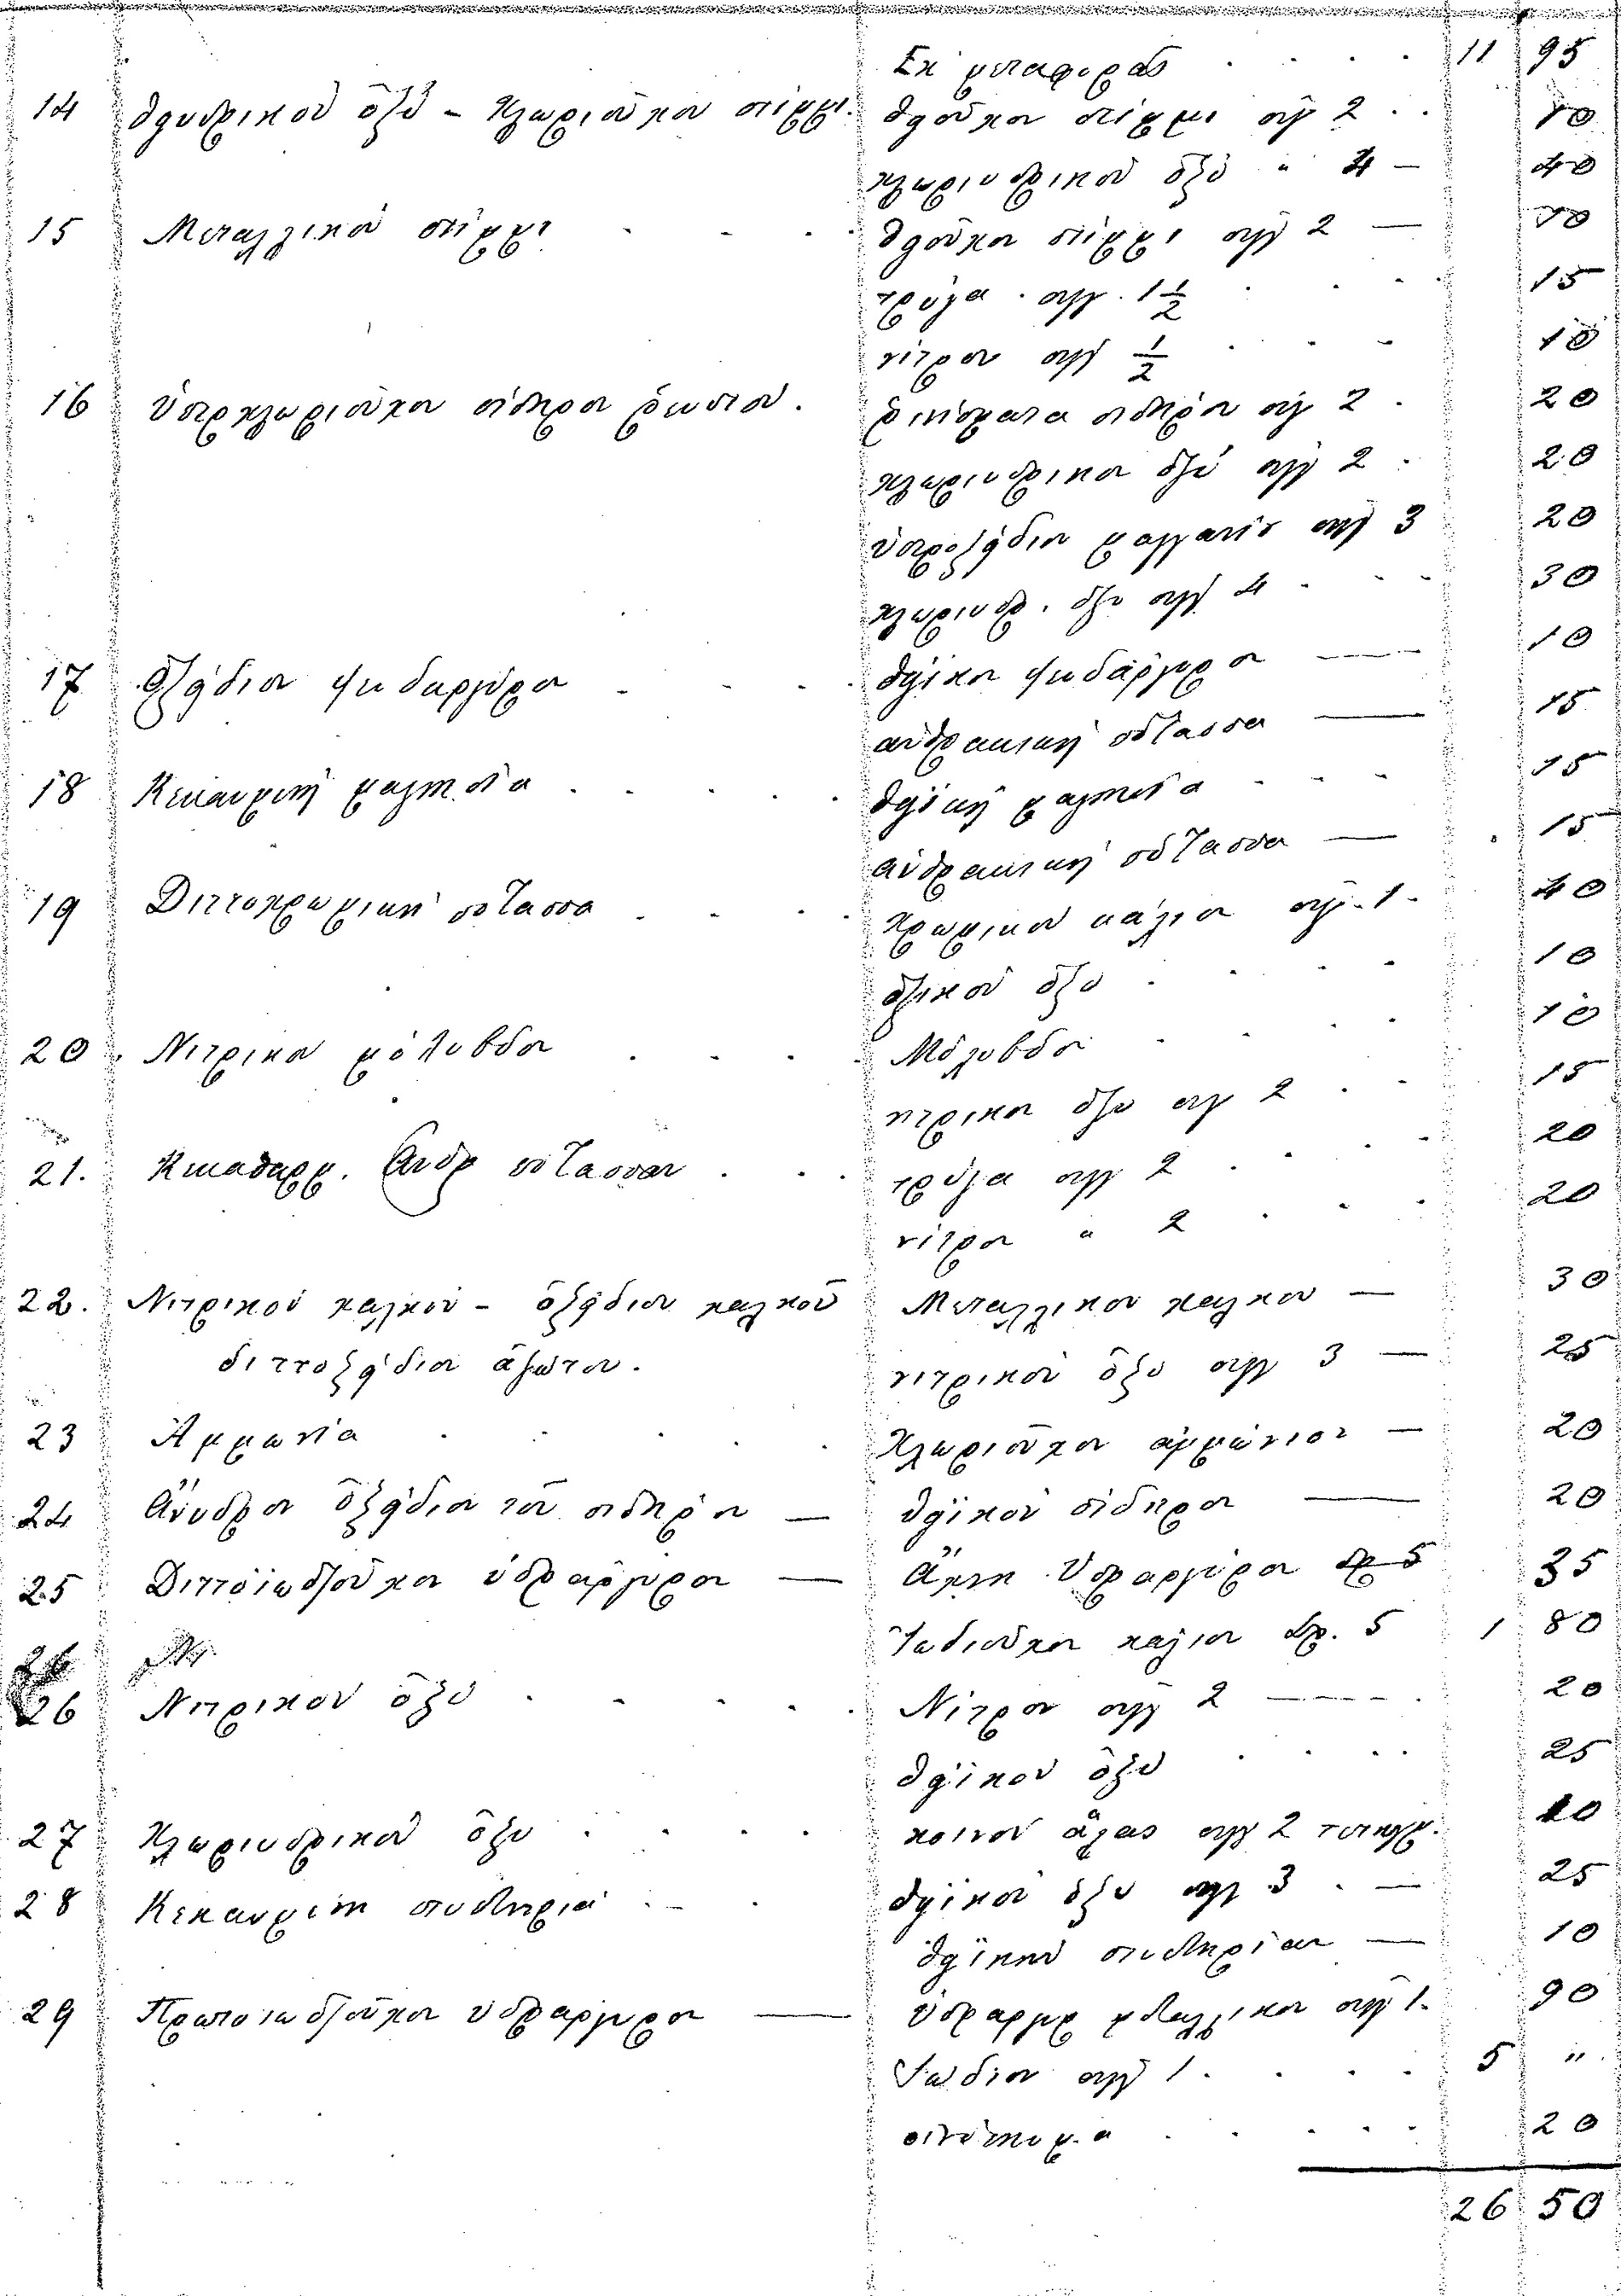 Ἐκ μεταφορᾶς . . . . 11 95
14 Θειυδρικοῦ ὀξύ - Χλωριοῦχον στίμμι. Θειοῦχον στίμμι οὐγ 2 . . 10
χλωριυδρικοῦ ὀξύ " 4 — 40
15 Μεταλλικοῦ στίμμι . . . Θειοῦχον στίμμι οὐγ 2 — 10
τρύγα . οὐγ. 1 1/2 . . . 15
νίτρον οὐγ 1/2 . . . 10
16 Ὑπερχλωριοῦχον σίδηρον ῥευστόν. ῥινίσματα σιδήρου οὐγ 2 . 20
χλωριυδρικόν ὀξύ οὐγ 2 . 20
ὑπεροξείδιον μαγγανίτ οὐγ 3 20
χλωριυδρ. ὀξύ οὐγ 4 . . . 30
17 Ὀξείδιον ψευδαργύρου . . . Θειϊκον ψευδάργυρον — 10
ἀνθρακικὴ πότασσα — 15
18 Κεκαυμένη μαγνησία . . . . . Θειϊκὴ μαγνησία - - - 15
ἀνθρακικὴ πότασσα — 15
19 Διττοχρωμικὴ πότασσα . . . χρωμικοῦ κάλιον οὐγ. 1 . 40
ὀξικοῦ ὀξύ . . . . 10
20 Νιτρικον μόλυβδον . . . Μόλυβδον . . . 10
νιτρικον ὀξύ οὐγ 2 . . 15
21. Κεκαθαρμ. Ἀνθρ πότασσαν . . . τρύγα οὐγ 2 . . . . 20
νίτρον " 2 . . . 20
22. Νιτρικοῦ χαλκοῦ - ὀξείδιον χαλκοῦ Μεταλλικοῦ χαλκοῦ — 30
διττοξείδιον ἀζώτου. νιτρικοῦ ὀξύ οὐγ 3 — 25
23 Ἀμμωνία . . . . . Χλωριοῦχον ἀμμώνιον — 20
24 Ἄνυδρον ὀξείδιον τοῦ σιδήρου — Θειϊκοῦ σίδηρον — 20
25 Διττοϊωδιοῦχον ὑδράργυρον — Ἄχνη Ὑδραργύρου δρ 5 35
Ἰωδιοῦχον κάλιον δρ. 5 1 80
26 Νιτρικοῦ ὀξύ . . . . . Νίτρον οὐγ 2 — 20
Θειϊκοῦ ὀξύ . . . . 25
27 Χλωριυδρικοῦ ὀξύ . . . . κοινοῦ ἅλας οὐγ 2 10
28 Κεκαυμένη στυπτηρία . - . Θειϊκοῦ ὀξύ οὐγ 3 . — 25
Θειϊκοῦ στυπτηρίαν — 10
29 Πρωτοιωδιοῦχον ὑδράργυρον — Ὑδράργυρ μεταλλικον οὐγ 1. 90
Ἰώδιον οὐγ 1 . . . . 5 "
οἰνόπνευμα . . . . . 20
26 50